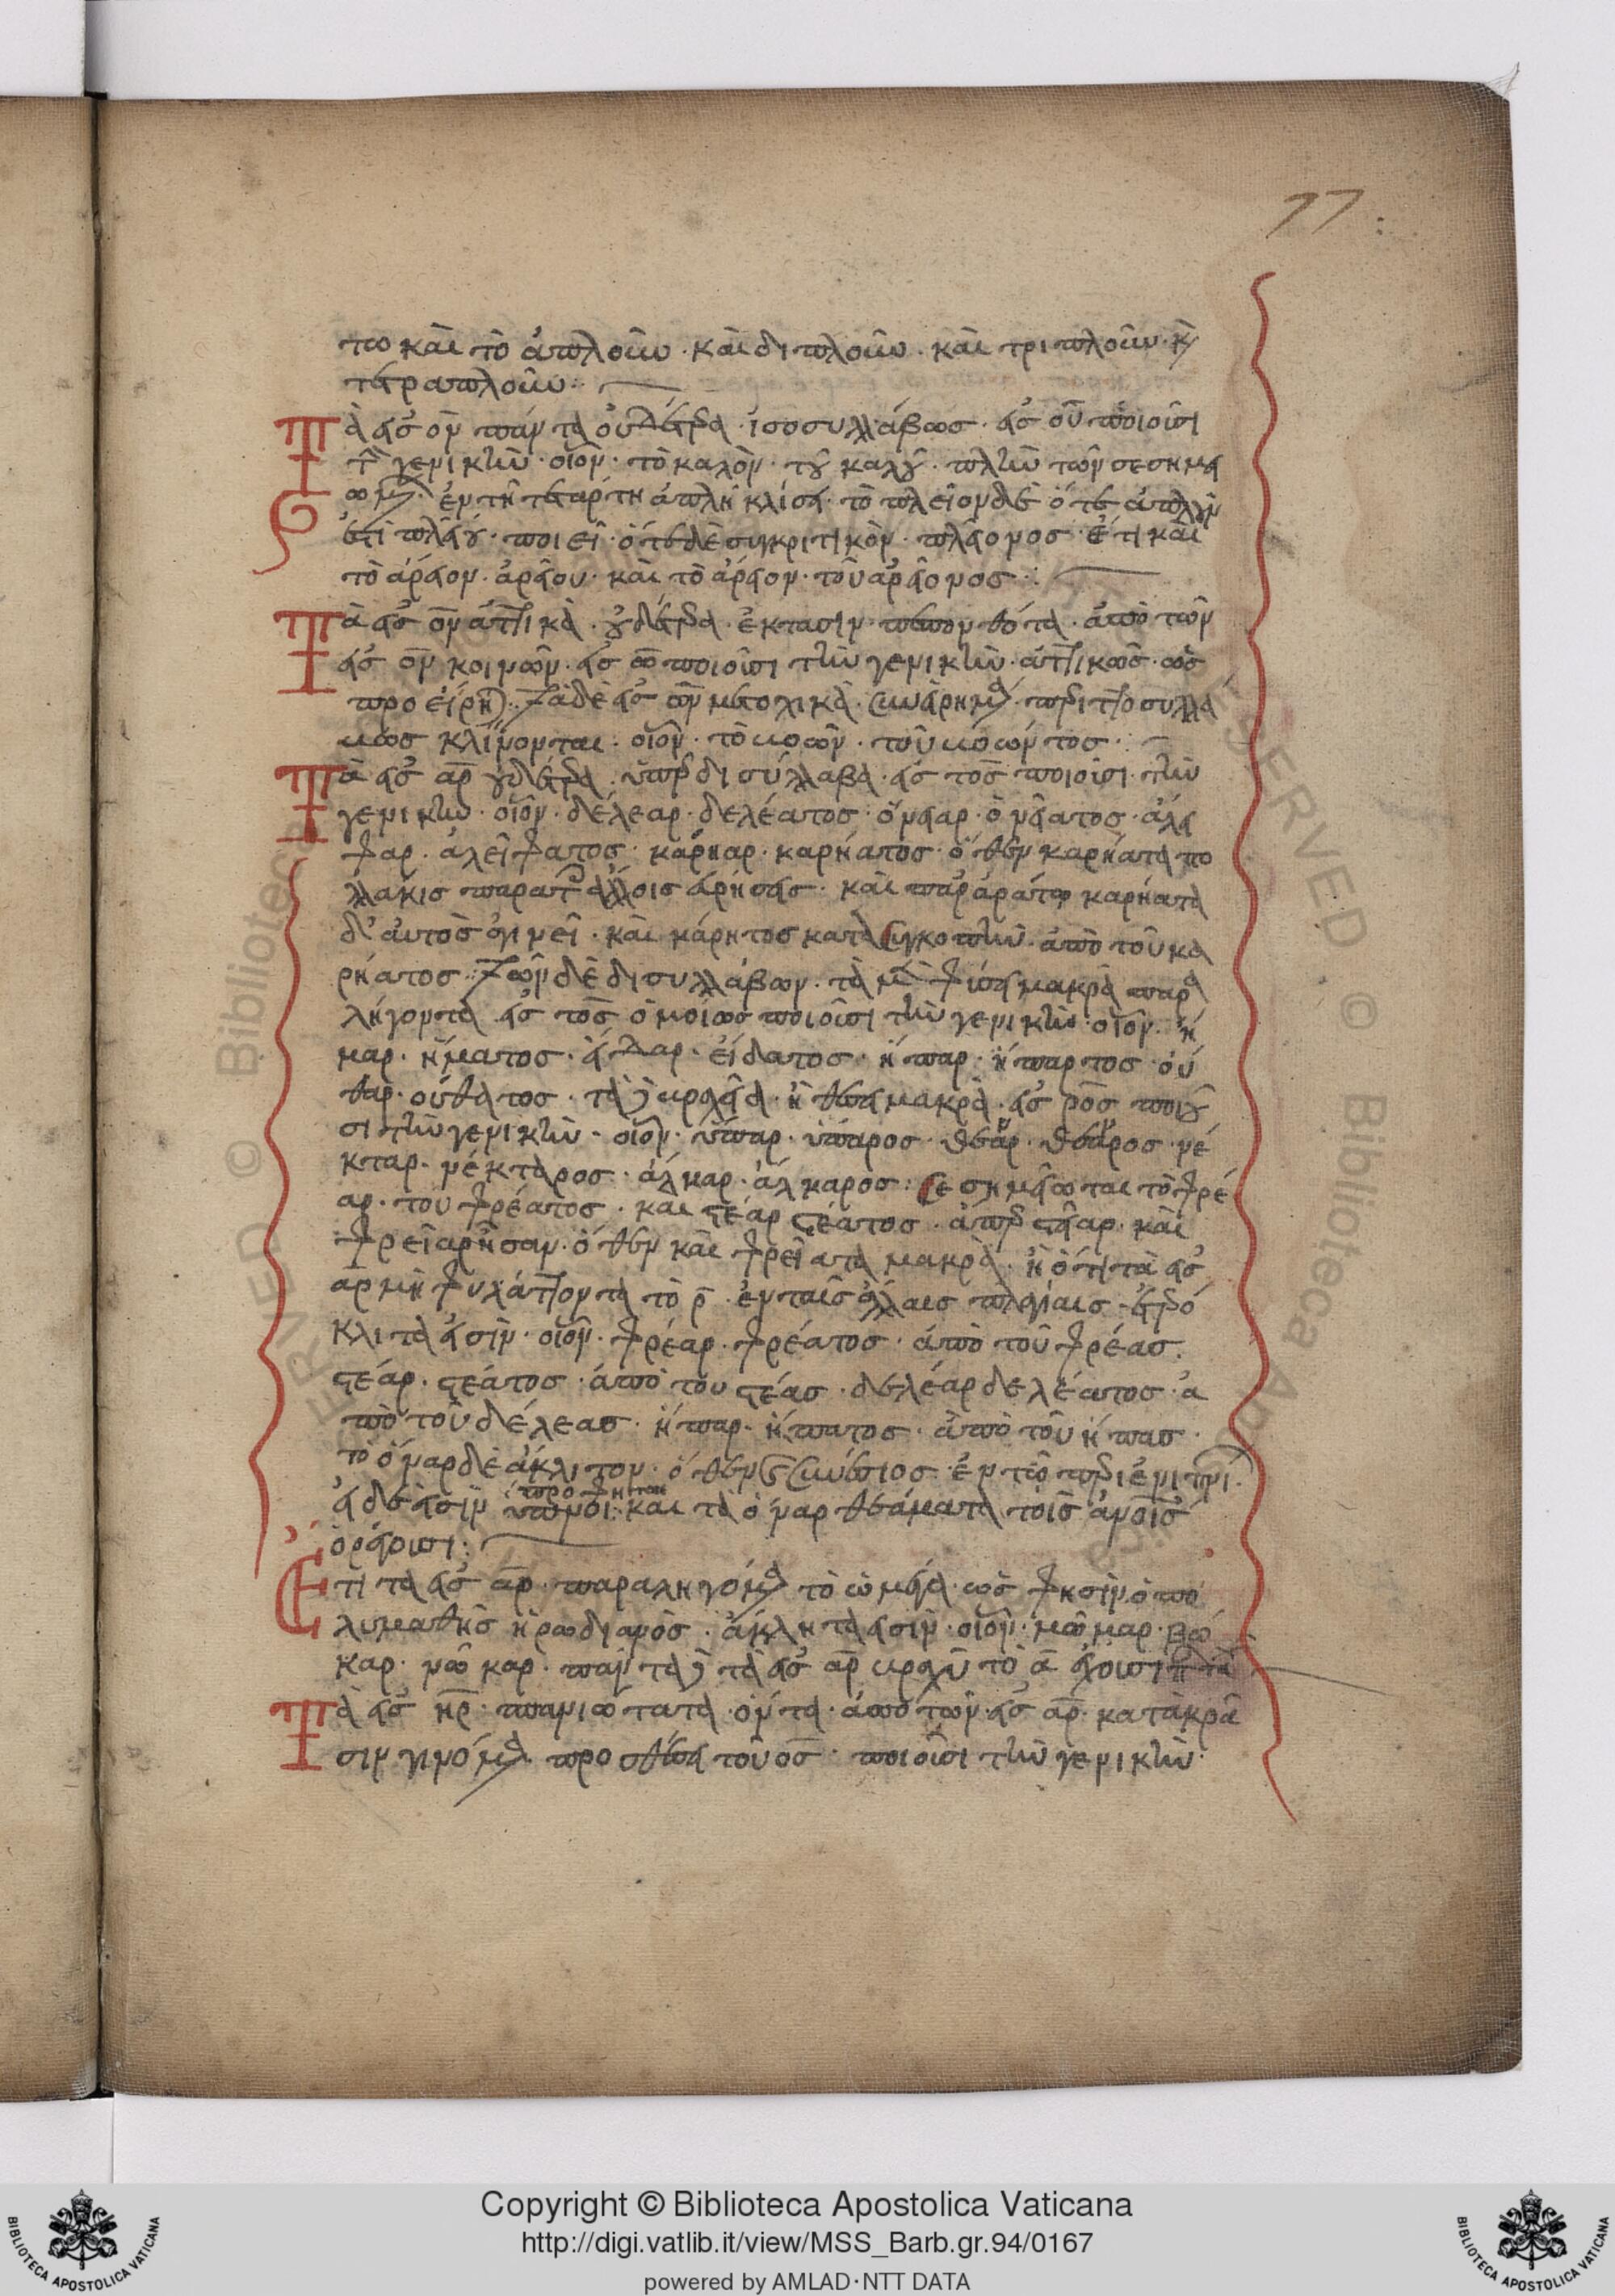 77
τω καὶ τὸ ἁπλοῦν · καὶ διπλοῦν · καὶ τριπλοῦν · κ
τετραπλοῦν :
Τὰ εἰς ον πάντα οὐδέτερα · ἰσοσυλλάβως · εἰς ου ποιοῦσι
τ γενικὴν · οἷον · τὸ καλὸν · τοῦ καλοῦ · πλὴν τῶν σεσημει
ωμ · ἐν τῆ τετάρτη ἁπλῆ κλίσει · τὸ πλεῖον δὲ ὅτε ἁπλοῦν
ἐστὶ πλείου · ποιεῖ · ὅτε δὲ συγκριτικὸν · πλείονος · ἔτι καὶ
τὸ ἄρειον · ἀρείου · καὶ τὸ ἄρειον · τοῦ ἀρείονος :
Τὰ εἰς ων ἀττικὰ · οὐδέτερα · ἔκτασιν πεπονθότα · ἀπὸ τῶν
εἰς ον κοινῶν · εἰς ω ποιοῦσι τὴν γενικὴν · ἀττικῶς · ὡς
προείρη · τὰ δὲ εἰς ων μετοχικὰ · συνηρημ · περιττοσυλλά
βως κλίνονται · οἷον · τὸ βοῶν · τοῦ βοῶντος :
Τὰ εἰς αρ οὐδέτερα · ὑπὲρ δισύλλαβα · εἰς τος ποιοῦσι · τὴν
γενικὴν · οἷον · δέλεαρ · δελέατος · ὄνειαρ · ὀνείατος · ἄλει
φαρ · ἀλείφατος · κάρηαρ · καρήατος · ὅθεν καρήατα πο
λλάκις παρὰ τ ἄλλοις · καὶ παρ' ἀράτω καρήατα
δ' αὐτὸς · καὶ κάρητος κατὰ συγκοπὴν · ἀπὸ τοῦ κα
ρήατος · τῶν δὲ δισυλλάβων · τὰ μ φύσει μακρᾶ παρα
λήγοντα · εἰς τος ὁμοίως ποιοῦσι τὴν γενικὴν · οἷον · ἦ
μαρ · ἤματος · εἶδαρ · εἴδατος · ἧπαρ · ἥπαρτος · οὖ
θαρ · οὔθατος · τὰ βραχεία · ἢ θέσει μακρᾶ · εἰς ρος ποιοῦ
σι τὴν γενικὴν · οἷον · ὕπαρ · ὕπαρος · θέναρ · θέναρος · νέ
κταρ · νέκταρος · ἄλκαρ · ἄλκαρος : Σεσημείωται τὸ φρέ
αρ · τοῦ φρέατος · καὶ στέαρ στέατος · ἅπερ στεῖαρ · καὶ
φρεῖαρ ἦσαν · ὅθεν καὶ φρείατα μακρὰ · ἢ ὅτι τὰ εἰς
αρ μὴ φυλάττοντα τὸ ρ · ἐν ταῖς ἄλλαις πλαγίαις · ἑτερό
κλιτα εἰσὶν · οἷον · φρέαρ · φρέατος · ἀπὸ τοῦ φρέας
στέαρ · στέατος · ἀπὸ τοῦ στέας · δελέαρ δελέατος · ἀ
πὸ τοῦ δέλεας · ἧπαρ · ἥπατος · ἀπὸ τοῦ ἧπας ·
τὸ ὄναρ δὲ ἄκλιτον · ὅθεν συνέσιος · ἐν τῶ περὶ ἐνυπνί
εἰ δὲ εἰσὶν ὕπνοι προφῆται · καὶ τὰ ὄναρ θεάματα τοῖς ἀνοις
ὀρέγουσι :
Ἔτι τὰ εἰς αρ · παραληγόμ τὸ ω μέγα · ὥς φησὶν ὁ πο
λυμαθὴς ἡρωδιανὸς · ἄκλητα εἰσὶν · οἷον · μῶμαρ · βῶ
καρ · νῶκαρ · πάντα τὰ εἰς αρ βραχὺ τὸ α ἔχουσι
Τὰ εἰς ηρ · σπανιώτατα · ὄντα · ἀπὸ τῶν εἰς αρ · κατὰ κρᾶ
σιν γινόμ · προσθέσει τοῦ ος · ποιοῦσι τὴν γενικὴν ·
Copyright © Biblioteca Apostolica Vaticana
http://digi.vatlib.it/view/MSS_Barb.gr.94/0167
powered by AMLAD·NTT DATA
BIBLIOTECA APOSTOLICA VATICANA
BIBLIOTECA APOSTOLICA VATICANA